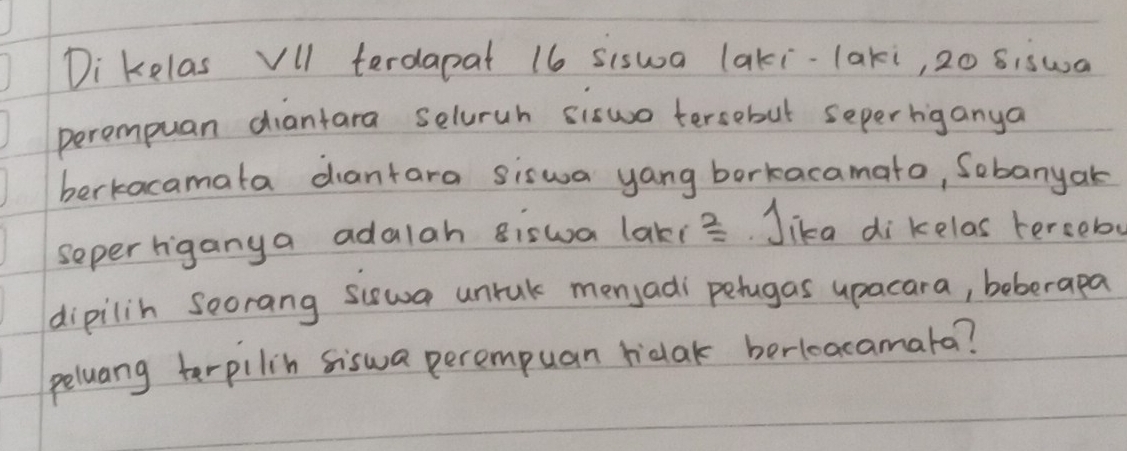 Di kelas VII terdapat 16 siswa laki-laki, 20 siswa
perempuan diantara seluruh siswa tersebut sepertiganya
berkacamata diantara siswa yang berkacamata, Sebanyak
sepertiganya adalah siswa laki². Jika di kelas tersebu
dipilih seorang siswa untuk menjadi petugas upacara, beberapa
peluang terpilih siswa perempuan tidak berkacamata?